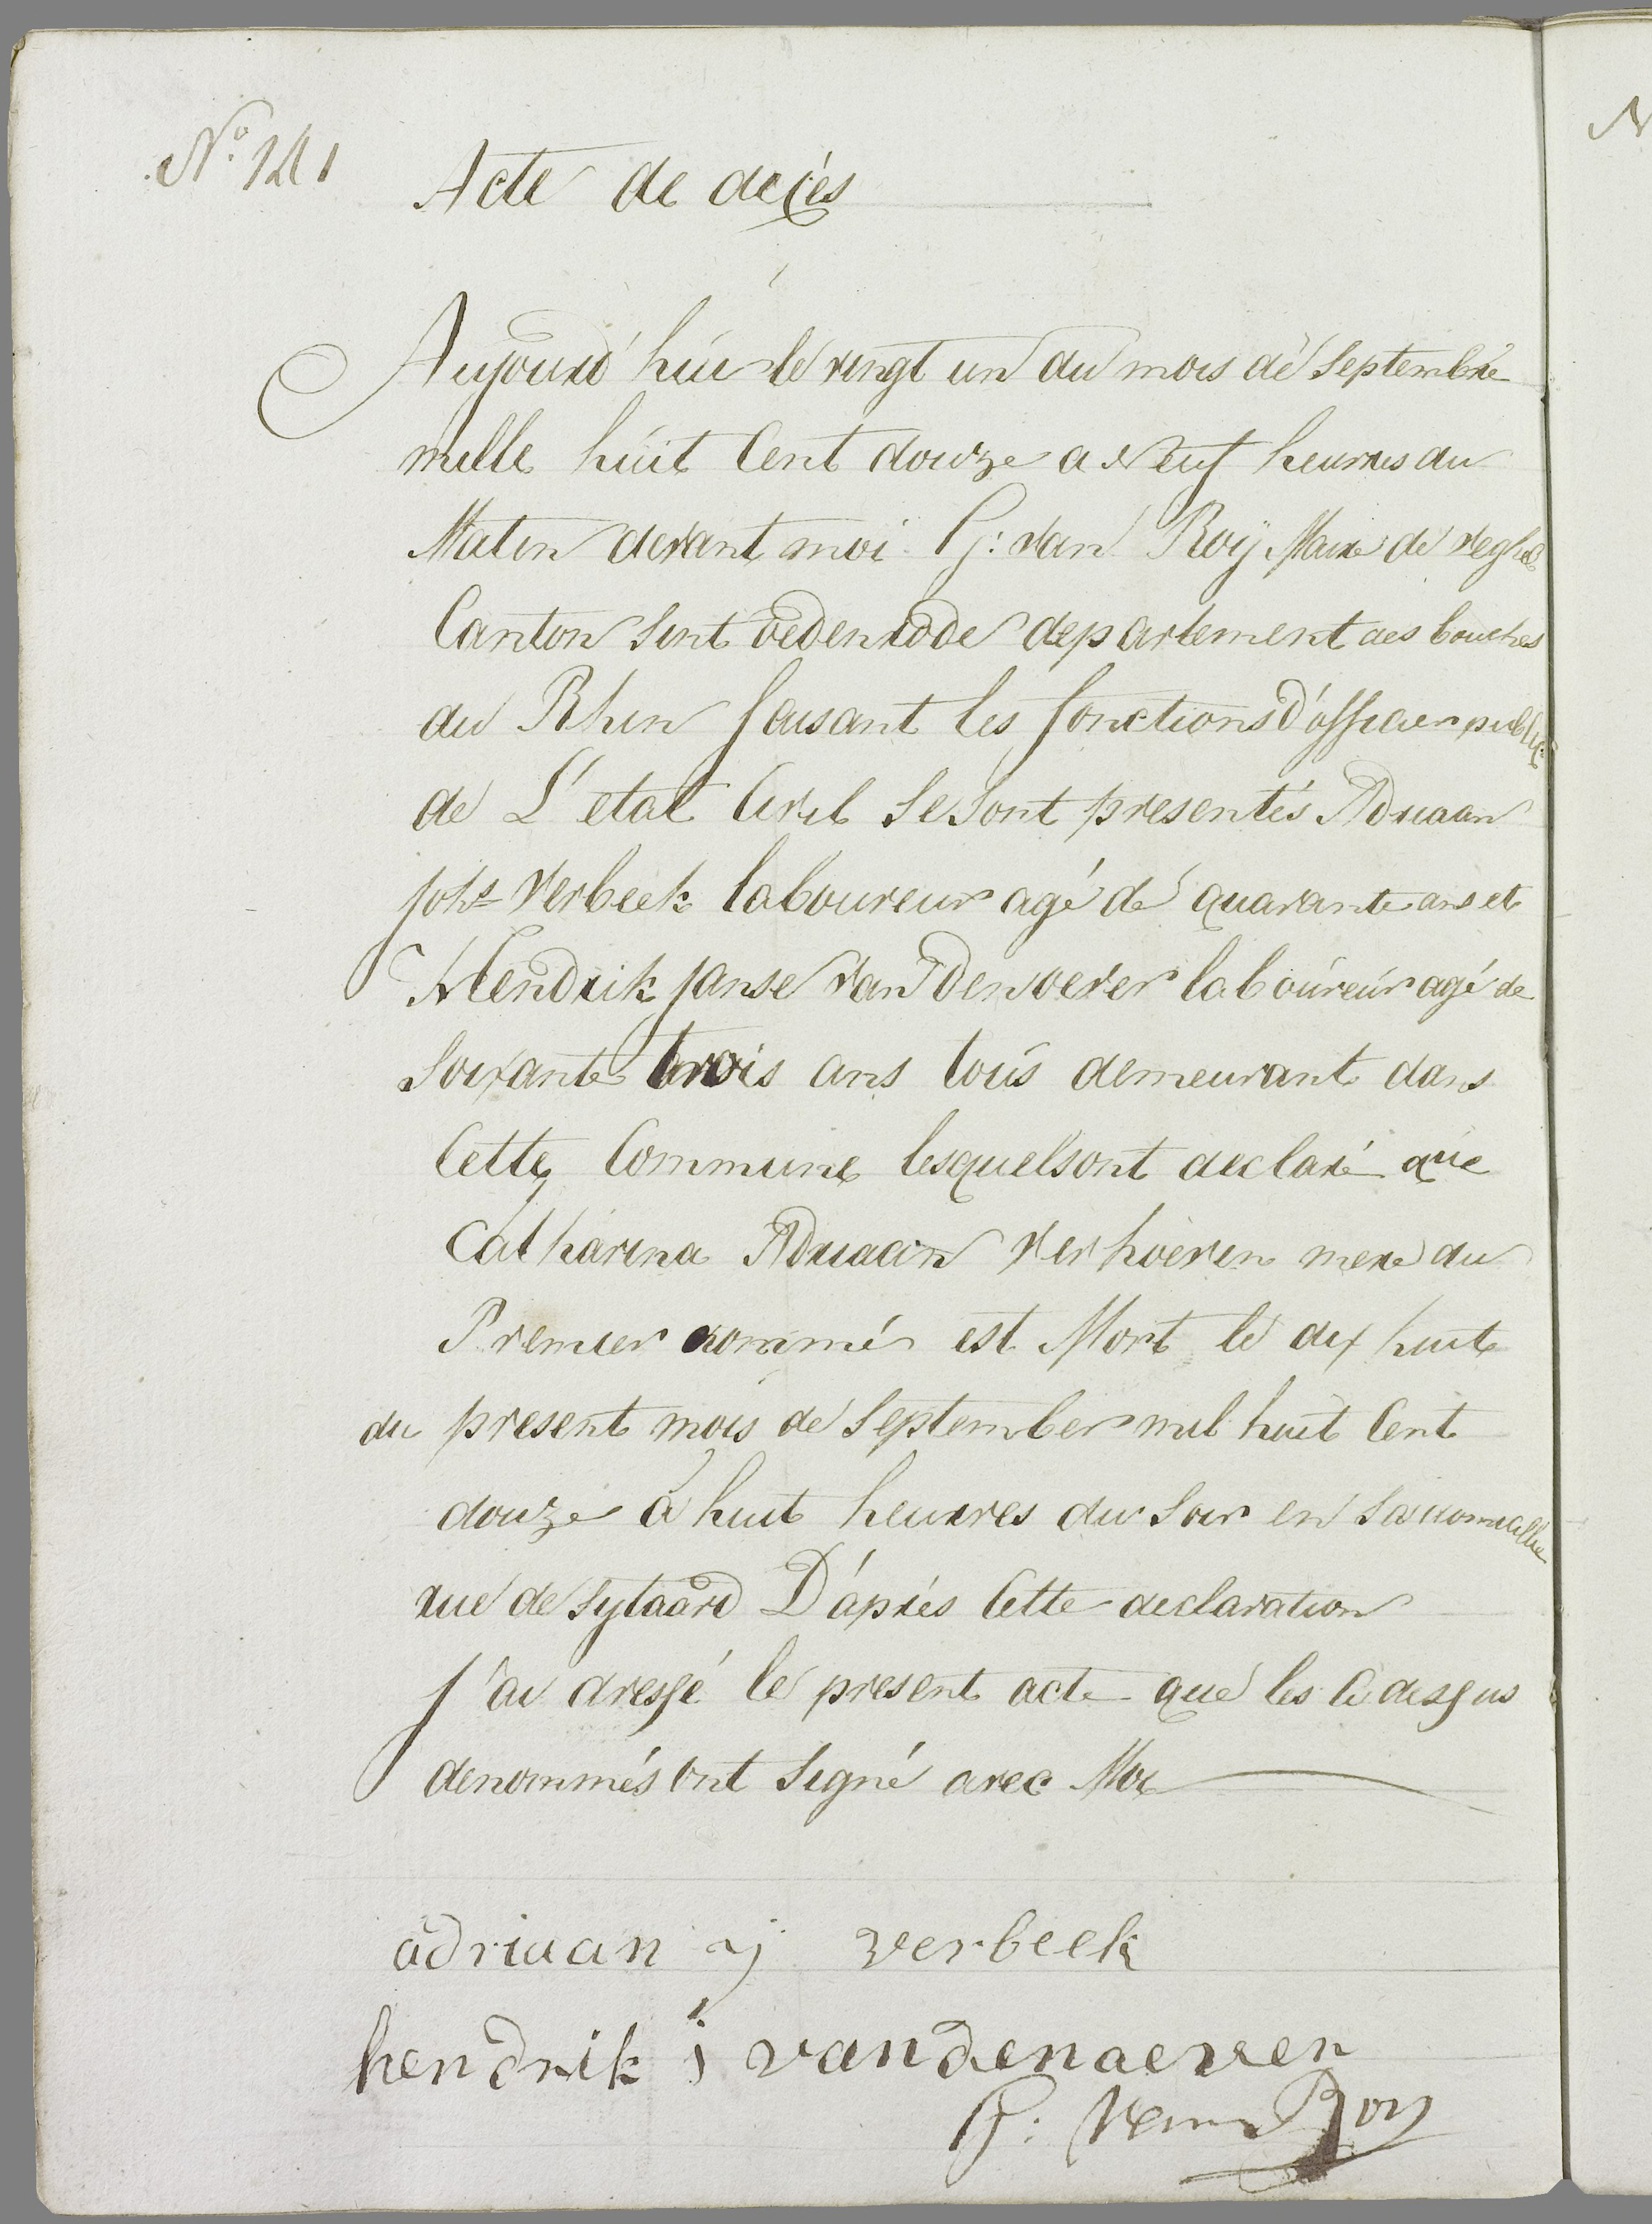 N.º 141
Acte de decés
Aujourd'húi le vingt un du mois de Septembre
mille húit Cent douze a Neuf heurres du
Matin devant moi G: van Roÿ Maire de veghel
Canton Sint oedenrode departement des bouches
du Rhin faisant les fonctions d'officier public
de L'etat Civil Se Sont presentés Adriaan
Johs Verbeek laboureur agé de quarante ans et
Hendrik Janse van den oever laboúreúr agé de
Soixante trois ans toús demeurant dans
Cette Commune lesquelsont declaré que
Catharina Adriaan Verhoeven mere du
Premier nommé est Mort le dix huit
du present mois de September mil huit Cent
douze à huit heurres du Soir en Sa
rue de Sytaard D'áprés Cette declaration
J'ai dressé le present acte que les Ci dessus
denommés ont Signé avec Moi
adriaan j verbeek
hendrik j vandenaever
G: Van Roy
N